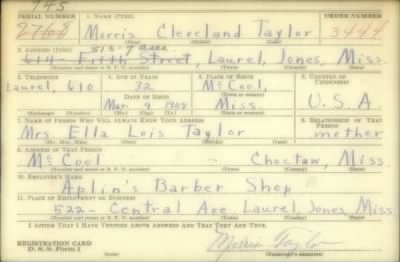 745
SERIAL NUMBER 1. NAME (Print) ORDER NUMBER
2768 Morris Cleveland Taylor 3444
(First) (Middle) (Last)
513-7 Ave
2. ADDRESS (Print)
614- Fifth Street, Laurel, Jones, Miss.
(Number and street or R. F. D. number) (Town) (County) (State)
3. TELEPHONE 4. AGE IN YEARS 5. PLACE OF BIRTH 6. COUNTRY OF CITIZENSHIP
Laurel, 610 32 McCool,
DATE OF BIRTH
Mar. 9 1908 Miss. U.S.A.
(Mo.) (Day) (Yr.) (State or country)
7. NAME OF PERSON WHO WILL ALWAYS KNOW YOUR ADDRESS 8. RELATIONSHIP OF THAT PERSON
Mrs. Ella Lois Taylor mother
(Mr., Mrs., Miss) (First) (Middle) (Last)
9. ADDRESS OF THAT PERSON
McCool Choctaw, Miss.
(Number and street or R. F. D. number) (Town) (County) (State)
10. EMPLOYER'S NAME
Aplin's Barber Shop
11. PLACE OF EMPLOYMENT OR BUSINESS
522- Central Ave Laurel, Jones, Miss.
(Number and street or R. F. D. number) (Town) (County) (State)
I AFFIRM THAT I HAVE VERIFIED ABOVE ANSWERS AND THAT THEY ARE TRUE.
REGISTRATION CARD
D. S. S. Form 1 Morris Taylor
(Registrant's signature)